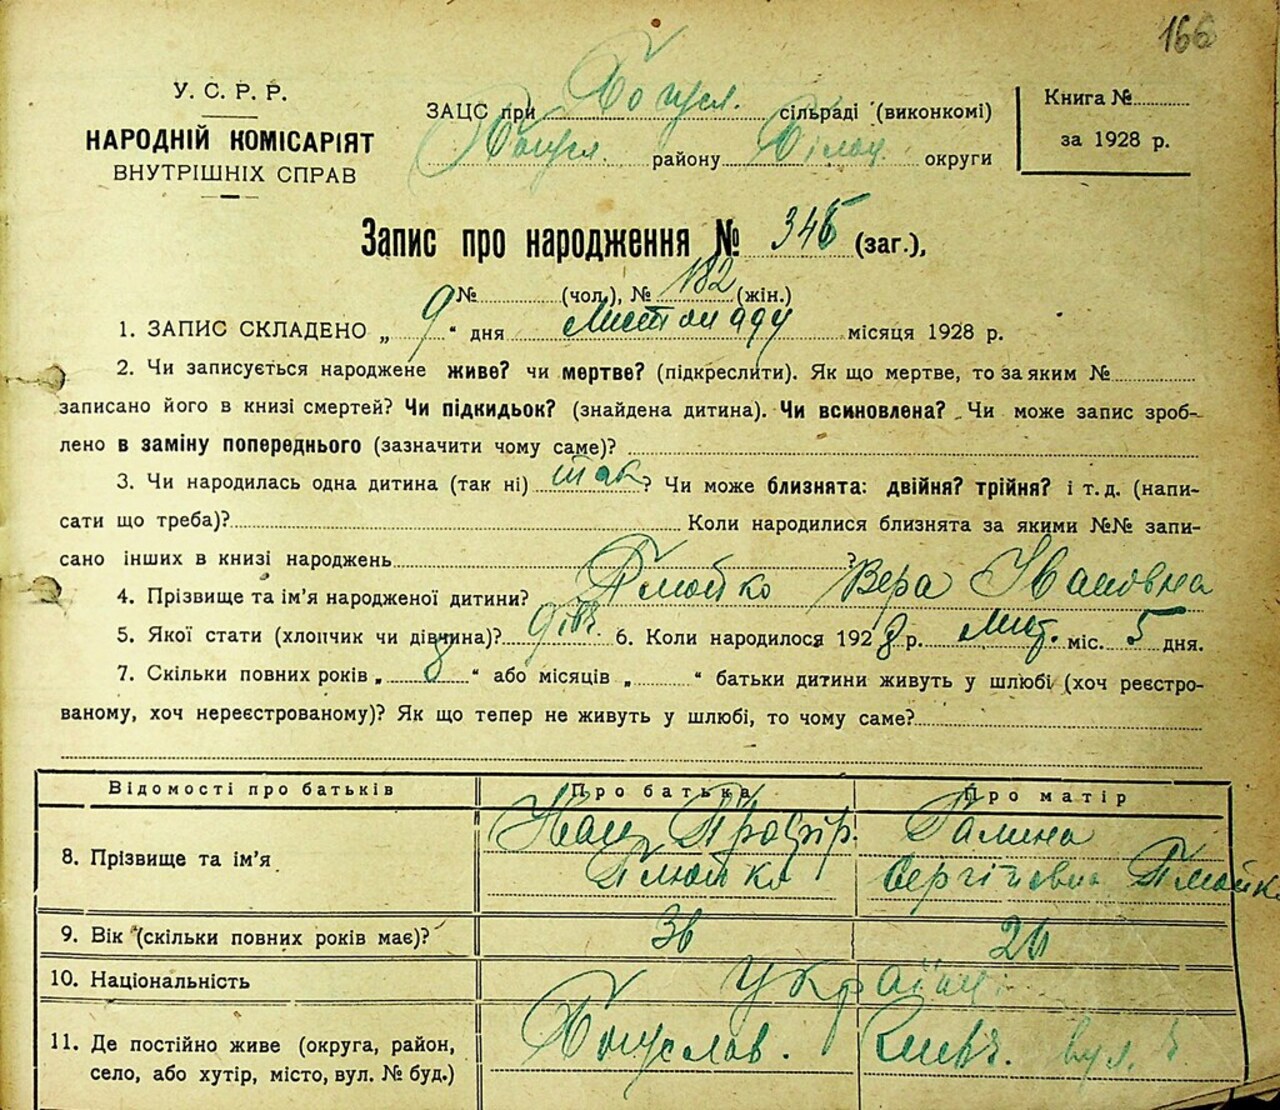 166
У. С. Р. Р.
НАРОДНІЙ КОМІСАРІЯТ
ВНУТРІШНІХ СПРАВ
ЗАЦС при Богусл. сільраді (виконкомі)
Богусл. району Білоц. округи
Книга №
за 1928 р.
Запис про народження № 346 (заг.),
№ (чол.), № 182 (жін.)
1. ЗАПИС СКЛАДЕНО „ 9 “ дня Листопаду місяця 1928 р.
2. Чи записується народжене живе? чи мертве? (підкреслити). Як що мертве, то за яким №
записано його в книзі смертей? Чи підкидьок? (знайдена дитина). Чи всиновлена? Чи може запис зроб-
лено в заміну попереднього (зазначити чому саме)?
3. Чи народилась одна дитина (так ні) так? Чи може близнята: двійня? трійня? і т. д. (напи-
сати що треба)? Коли народилися близнята за якими №№ запи-
сано інших в книзі народжень ?
4. Прізвище та ім'я народженої дитини? Вера Івановна
5. Якої стати (хлопчик чи дівчина)? дівч. 6. Коли народилося 1928 р. Лист. міс. 5 дня.
7. Скільки повних років „ 8 “ або місяців „ “ батьки дитини живуть у шлюбі (хоч реєстро-
ваному, хоч нереєстрованому)? Як що тепер не живуть у шлюбі, то чому саме?
Відомості про батьків Про батька Про матір
8. Прізвище та ім'я Іван Галина
Сергіївна
9. Вік (скільки повних років має)? 36 26
10. Національність Україн.
11. Де постійно живе (округа, район,
село, або хутір, місто, вул. № буд.) Богуслав. вул.